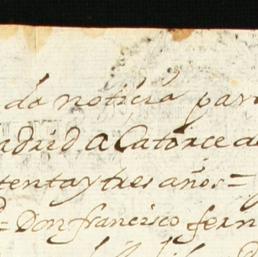 da noticia para
adrid a Catorce de
tenta y tres años =
Don francisco fern